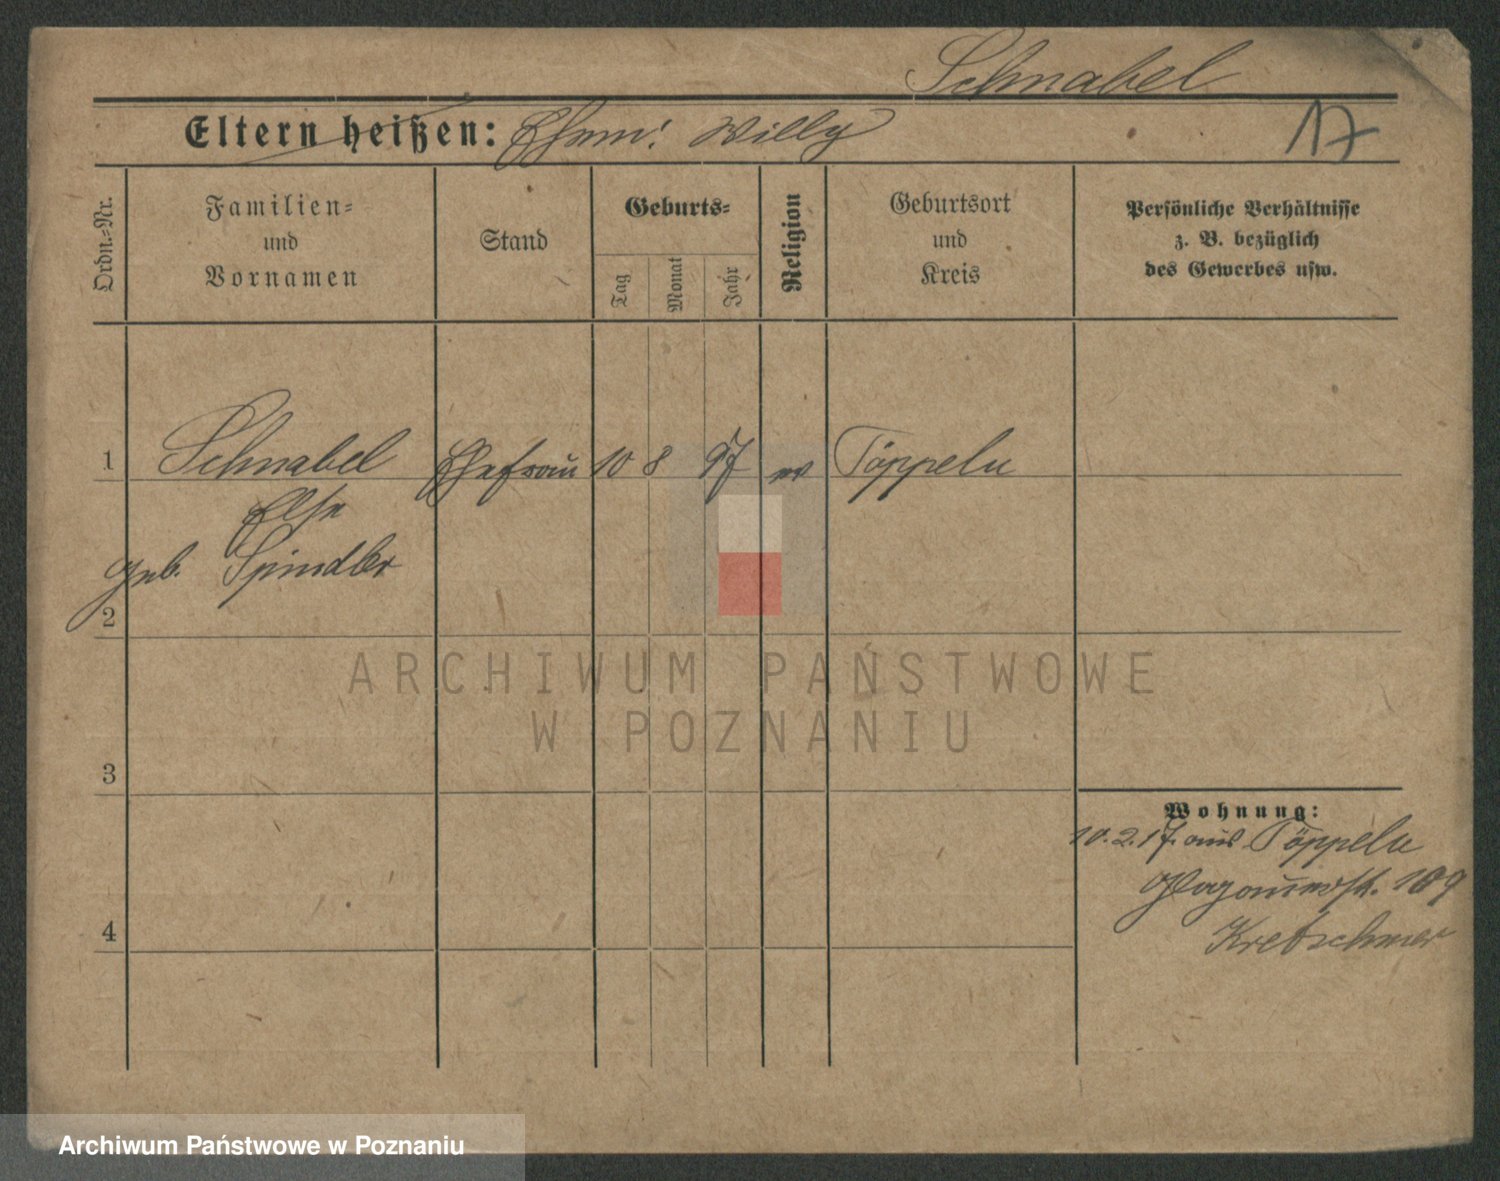 Schnabel
Eltern heißen: Ehem: Willy
17
Ordn.-Nr.
Familien-
und
Vornamen
Stand
Geburts-
Tag
Monat
Jahr
Religion
Geburtsort
und
Kreis
Persönliche Verhältnisse
z. B. bezüglich
des Gewerbes usw.
1 Schnabel Ehefrau 10 8 97 ev Töppeln
Else
geb. Spindler
2
3
4
Wohnung:
10.2.17. aus Töppeln
109
Kretschmer
ARCHIWUM PAŃSTWOWE
W POZNANIU
Archiwum Państwowe w Poznaniu